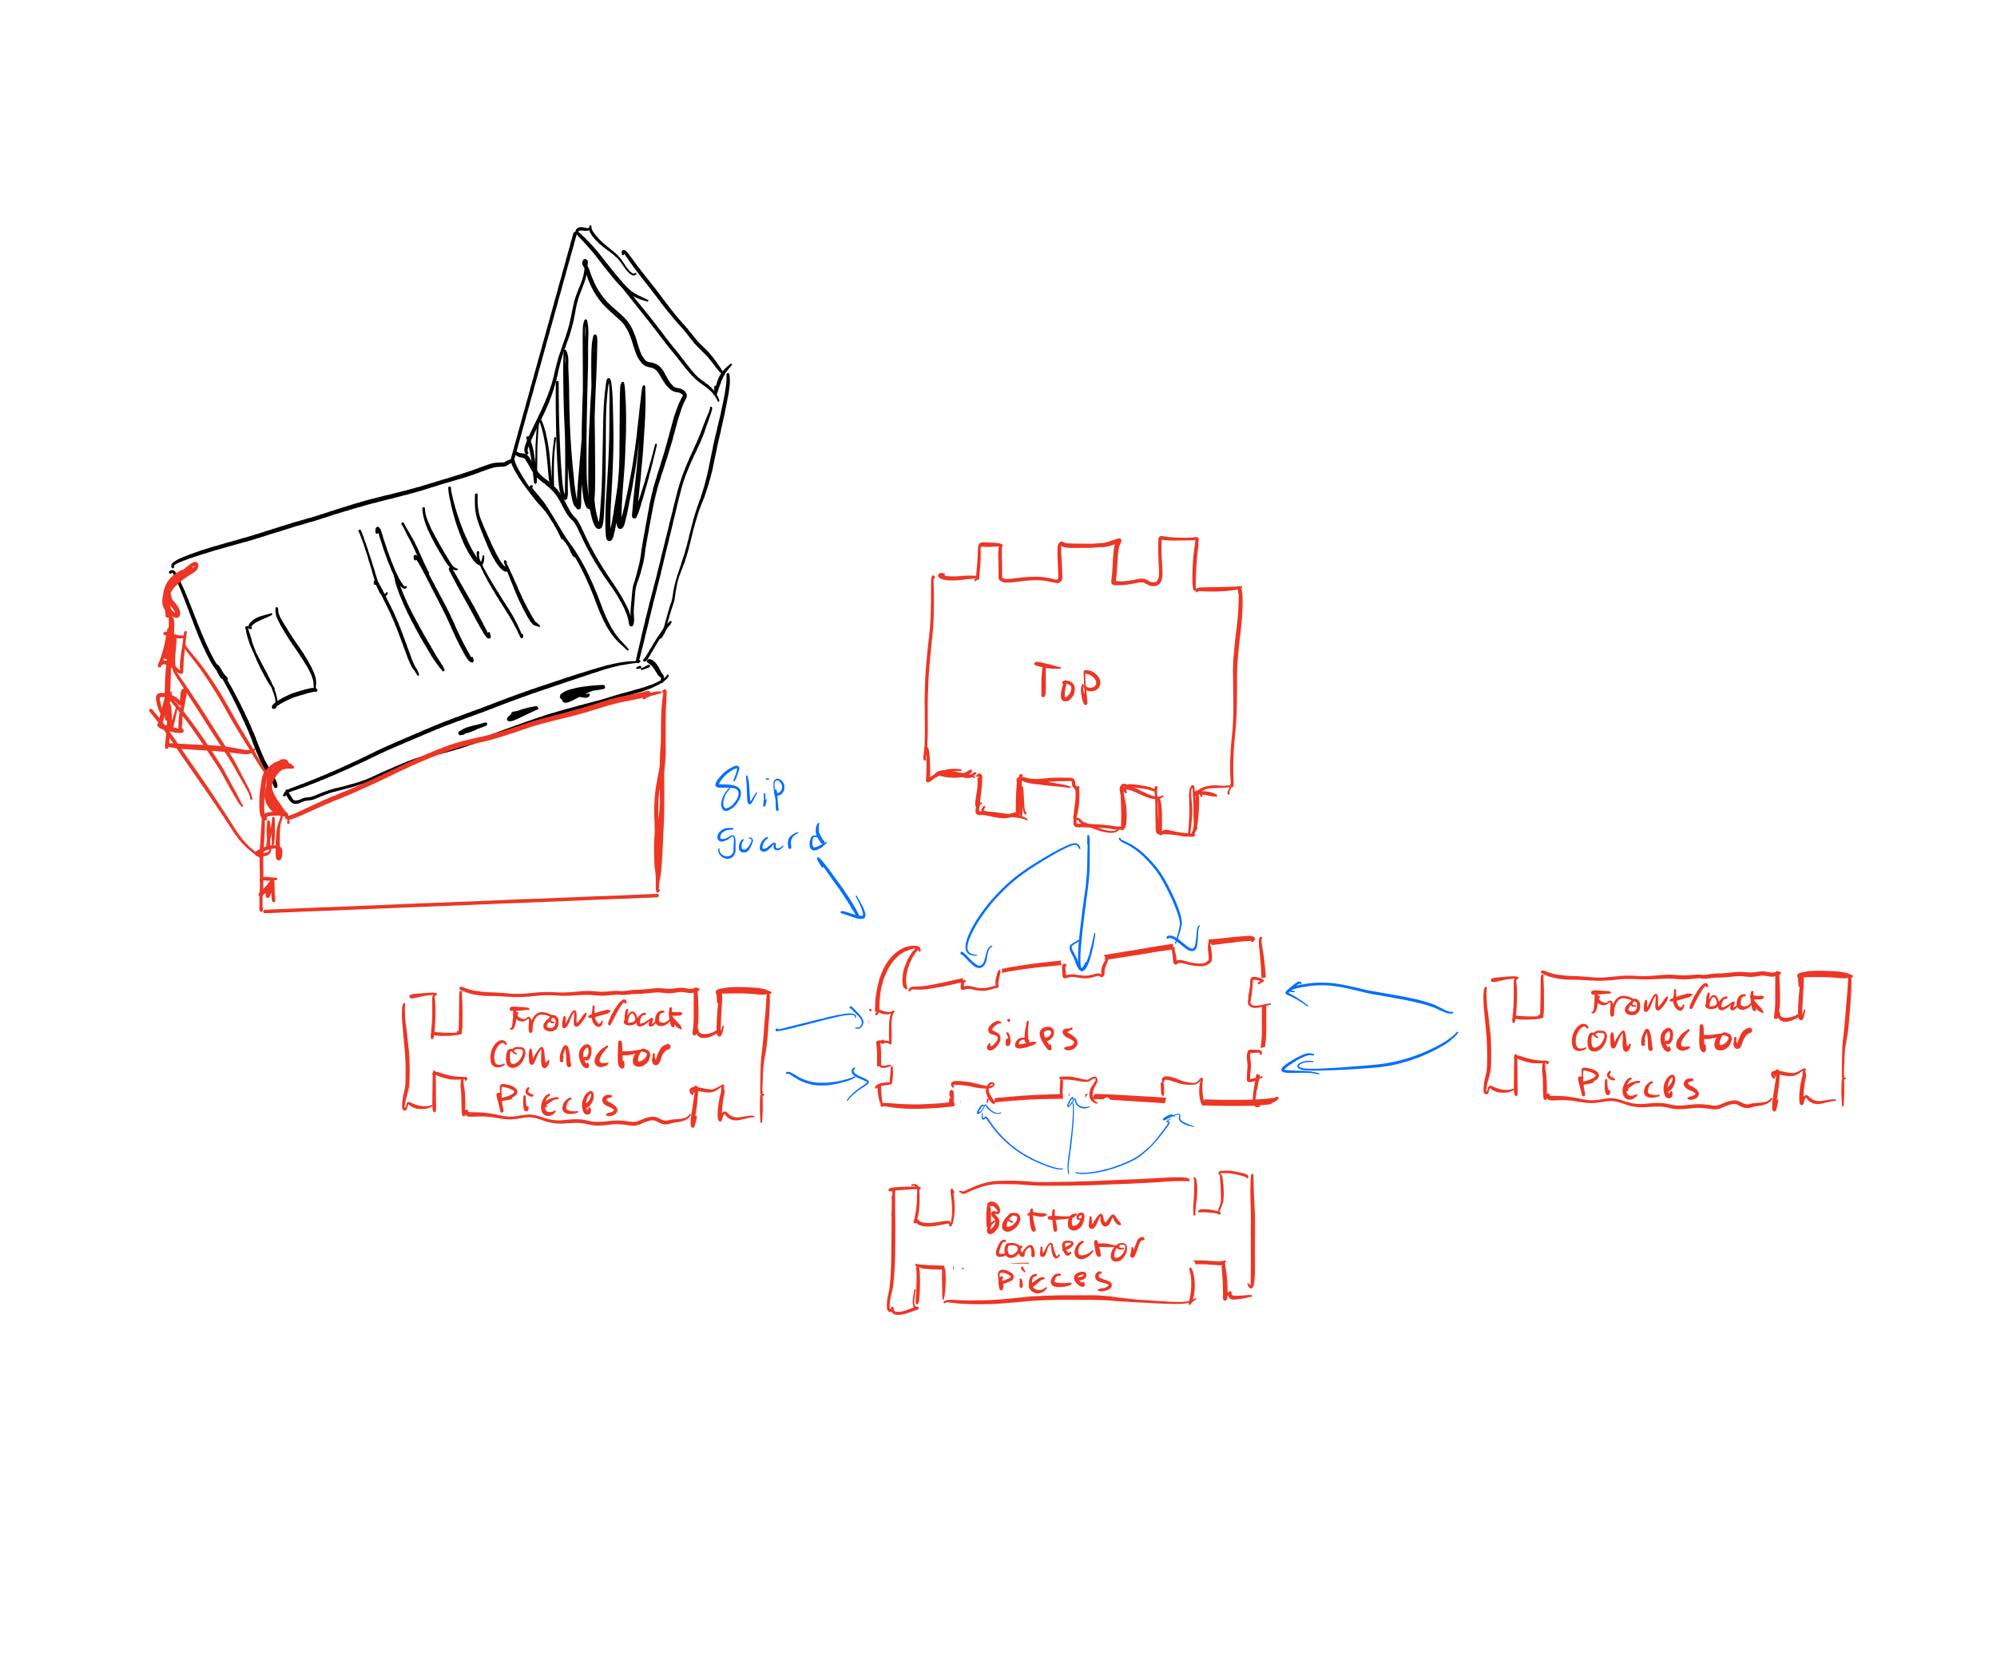 Top
Slip
guard
Front/back
Connector
Pieces
Sides
Front/back
Connector
Pieces
Bottom
connector
pieces